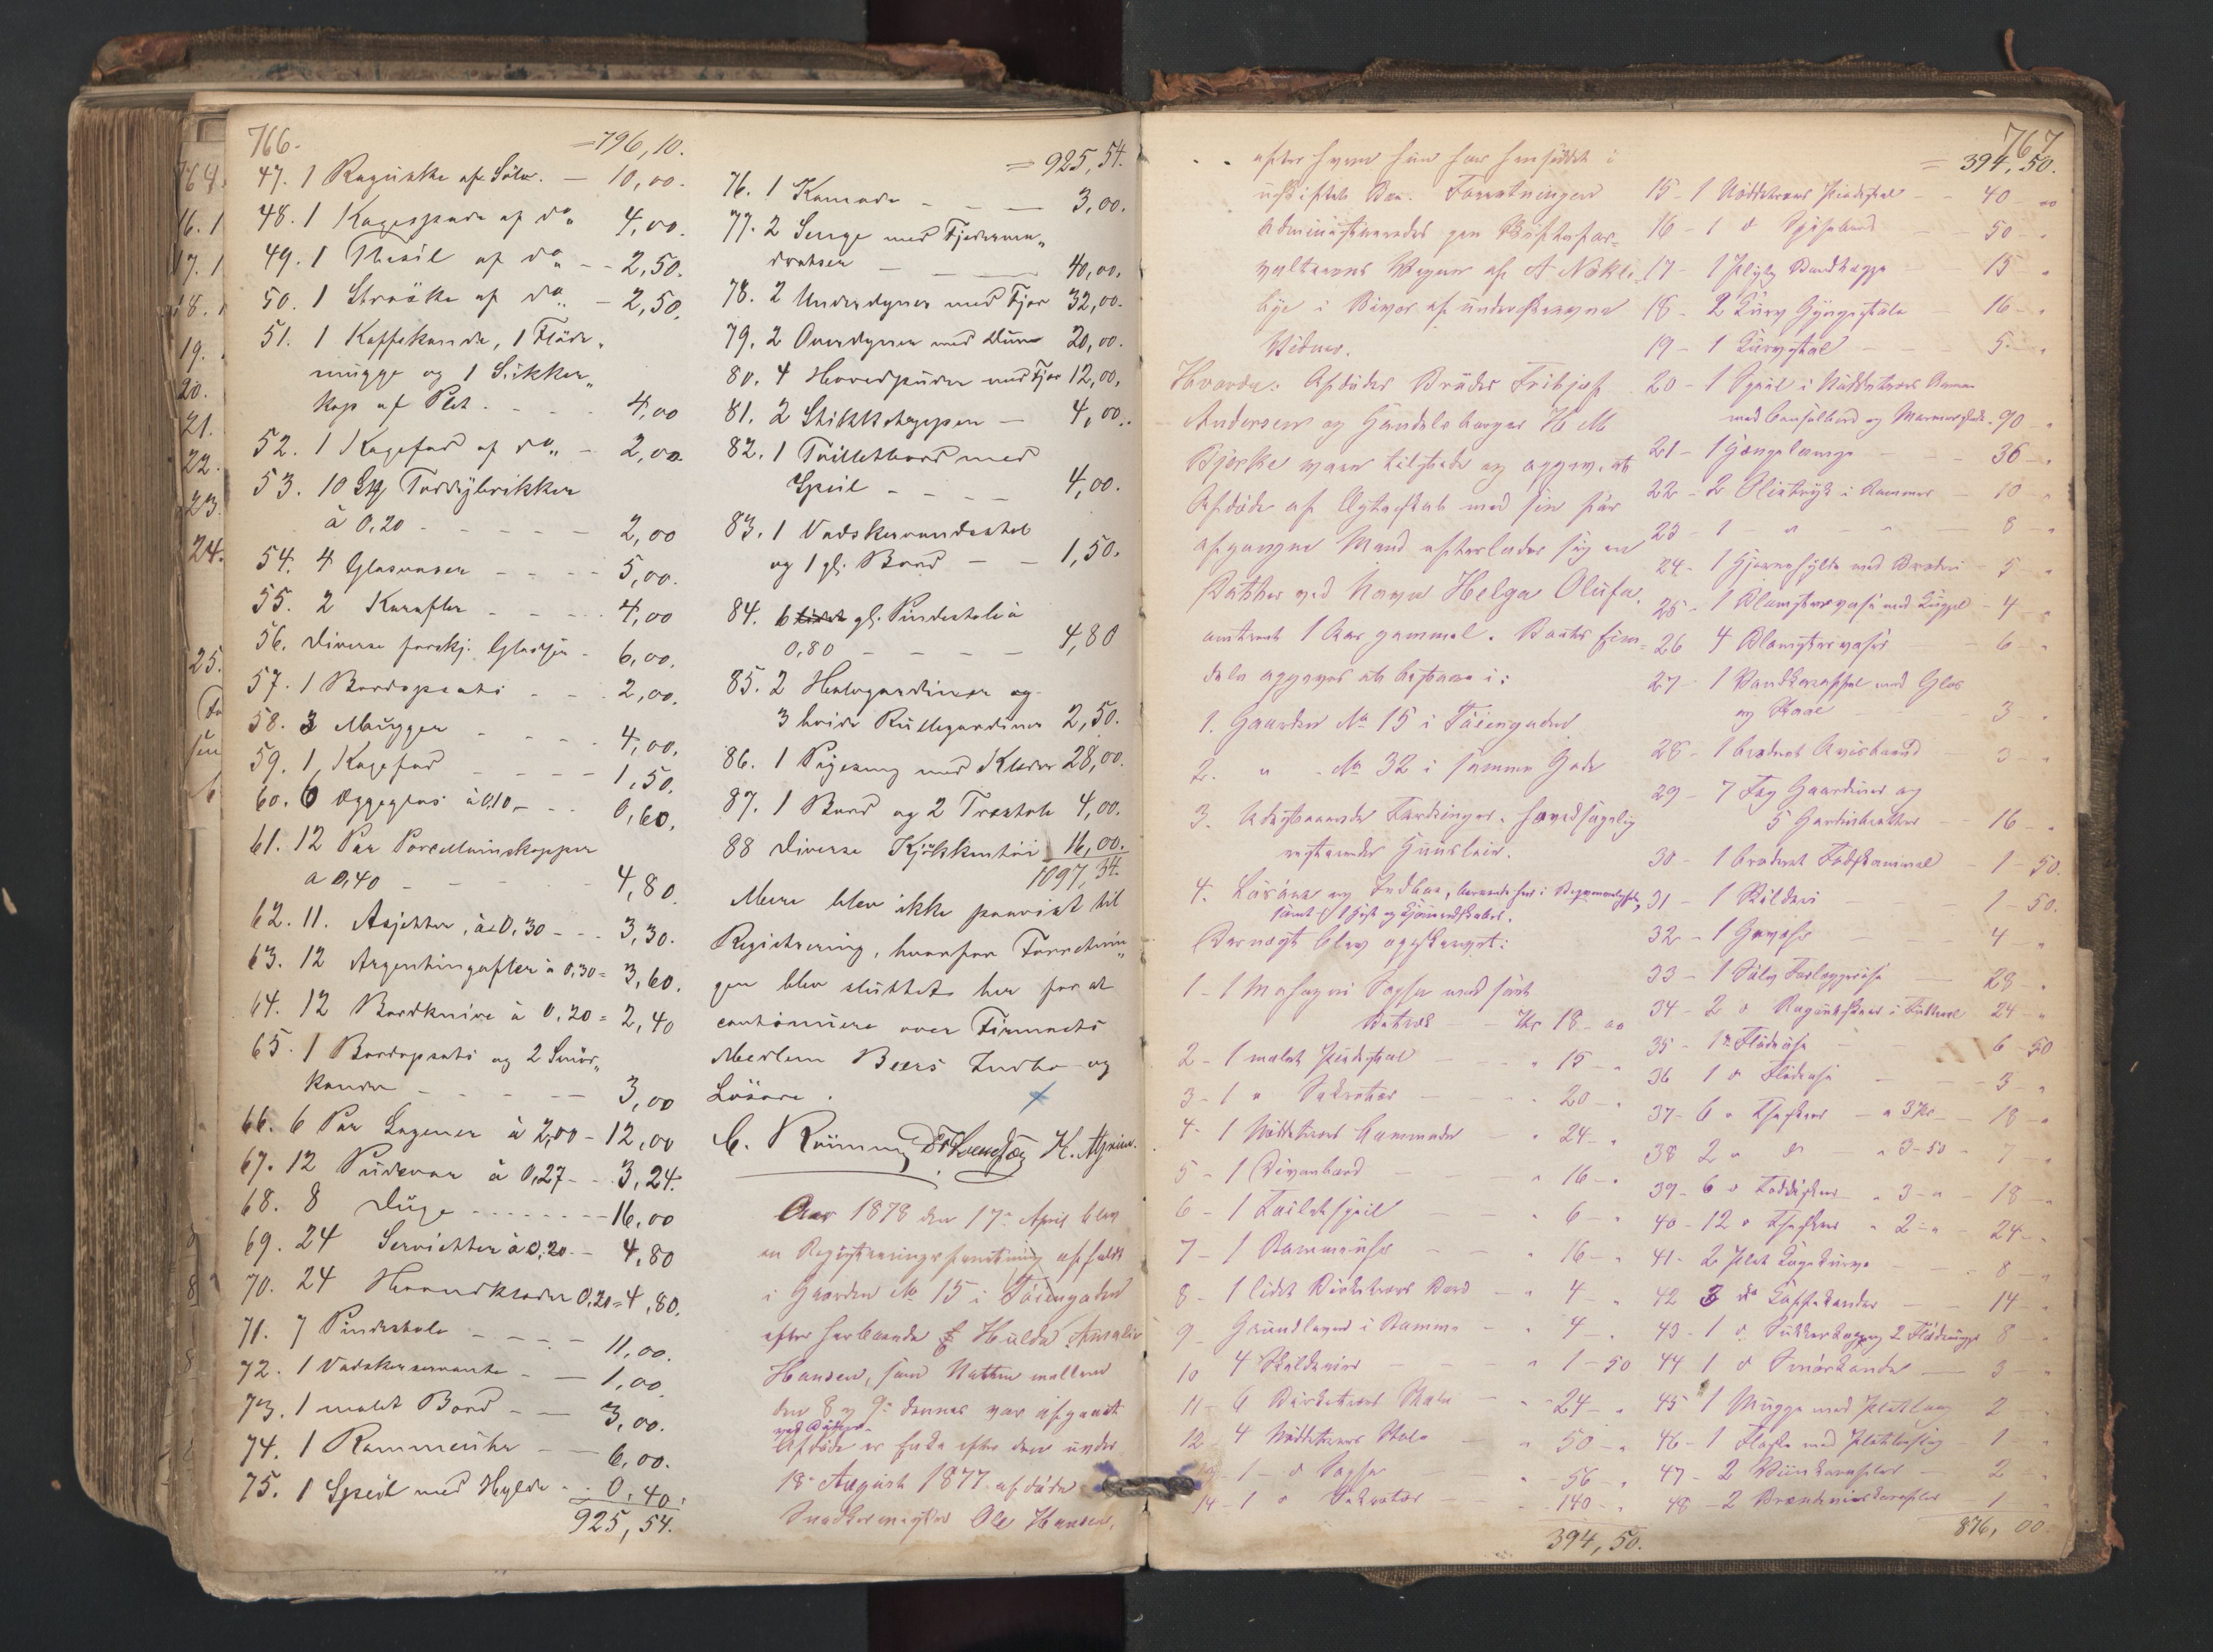 766.
= 796,10.
47. 1 Raguske af Sölv. — 10,00.
48. 1 Kagespade af do 4,00.
49. 1 Thesil af do — 2,50.
50. 1 Ströske af do — 2,50.
51. 1 Kaffekande, 1 Flöde-
mugge og 1 Sukker-
kop af Plet . 4,00
52. 1 Kagefad af do — 2,00
53. 10 Stk Toddybrikker
à 0,20 — 2,00
54. 4 Glasvaser — 5,00.
55. 2 Karafler — 4,00
56. Diverse forskj. Glastøi — 6,00.
57. 1 Bordopsats — 2,00.
58. 3 Mugger — 4,00.
59. 1 Kagefad — 1,50.
60. 6 Æggeglas à 0,10 — 0,60.
61. 12 Par Porcellainskopper
a 0,40 — 4,80.
62. 11. Asjetter, à 0,30 — 3,30.
63. 12 Argentingafler à 0,30 = 3,60.
64. 12 Bordknive à 0,20 = 2,40
65. 1 Bordopsats og 2 Smör-
kander — 3,00
66. 6 Par Lagener à 2,00 — 12,00
67. 12 Pudevar à 0,27 — 3,24.
68. 8 Duge — 16,00
69. 24 Servietter à 0,20 — 4,80
70. 24 Haandklæder 0,20 = 4,80.
71. 7 Pindestole — 11,00.
72. 1 Vadskeservante — 1,00
73. 1 malet Bord — 3,00.
74. 1 Rammeuhr — 6,00.
75. 1 Speil med Hylde — 0,40.
925,54.
= 925,54.
76. 1 Komode — 3,00.
77. 2 Senge med Fjedermadratser — 40,00.
78. 2 Underdyner med Fjær 32,00.
79. 2 Overdyner med Duun 20,00.
80. 4 Hovedpuder med Fjær 12,00.
81. 2 Stikketæpper — 4,00.
82. 1 Toilletbord med
Speil — 4,00.
83. 1 Vadskevandsstol
og 1 gl. Bord — 1,50.
84. 6 gl. Pindestole à
0,80 — 4,80
85. 2 Halvgardiner og
3 hvide Rullegardiner 2,50.
86. 1 Pigeseng med Klæder 28,00.
87. 1 Bord og 2 Træstole 4,00.
88 Diverse Kjökkentöi 16,00.
1097,34.
Mere blev ikke paavist til
Registrering, hvorfor Forretnin-
gen blev sluttet her for at
continuere over Firmaets
Medlem Beers Indbo og
Lösöre.
Aar 1878 den 17de April blev
en Registreringsforretning afholdt
i Gaarden No 15 i Töiengaden
efter herboende Hulda Amalie
Hansen, som Natten mellem
den 8 og 9de dennes var afgaaet
ved Døden.
Afdöde er Enke efter den under
18de August 1877 afdöde
Snedkermester Ole Hansen,
767
efter hvem hun har hensiddet i
uskiftet Boe. Forretningen
administreredes paa Skiftefor-
valterens Vegne af A Nøkle-
bye i Overvær af underskrevne
Vidner.
Hvorda: Afdödes Broder Fribjof
Andersen og Handelsborger H M
Bjerke vare tilstede og opgav, at
Afdöde af Ægteskab med sin før
afgangne Mand efterlader sig en
Datter ved Navn Helga Olufa,
omtrent 1 Aar gammel. Boets Eien-
dele opgaves at bestaae i:
1. Gaarden No 15 i Töiengaden
2. " No 32 i samme Gade
3. Udestaaende Fordringer, hovedsagelig
resterende Huusleie.
4. Lösöre og Indboe,
samt 1 Hest og Kjøreredskaber.
Dernæst blev opskrevet:
1 - 1 Mahogni Sopha med samt
Betræk — Kr 18 - 00
2 - 1 malet Pindestol — " 15 - "
3 - 1 " Sekretær — " 20 - "
4 - 1 Nöddetræes Commode — " 24 - "
5 - 1 Divanbord — " 16 - "
6 - 1 Toiletspeil — " 6 - "
7 - 1 Rammeuhr — " 16 - "
8 - 1 lidet Birketræes Bord — " 4 - "
9 - Grundloven i Ramme — " 4 - "
10 4 Skilderier — " 1 - 50
11 - 6 Birketræes Stole — " 24 - "
12 4 Nöddetræes Stole — " 50 - "
1 - d Sopha — " 56 - "
14 - 1 " Sekretær — 140 - "
394,50.
= 394,50.
15 - 1 Nöddetræes Pindestol — 40 - 00
16 - 1 d Spisebord — 50 - "
17 - 1 Bordtæppe — 15 "
18 - 2 Kurv Gyngestole — 16 - "
19 - 1 Kurvstol — 5 - "
20 - 1 Speil i Nöddetræes Ramme
med Consolbord og Marmorplade - 90 - "
21 - 1 Hængelampe — 36 - "
22 - 2 Olietryk i Rammer — 10 "
23 - 1 " " — 8 "
24 - 1 Hjørnehylde med Broderi - 5 "
25 - 1 Blomstervase med Kuppel - 4 - "
26 4 Blomstervaser — 6 - "
27 - 1 Vandkaraffel med Glas
og Skaal — 3 "
28 - 1 broderet Avisbaand 3 "
29 - 7 Fag Gardiner og
5 Gardinbrætter — 16 - "
30 - 1 broderet Fodskammel — 1 - 50.
31 - 1 Skilderi — 1 - 50.
32 - 1 — 4 "
33 - 1 Sölv Forlæggerske — 28 - "
34 - 2 d Ragoutskeer i Futteral 24 - "
35 - 1 d Flödeskee — 6 - 50
36 1 d Flödeske — 3 - "
37 - 6 d Theskeer — a 3 Kr — 18 - "
38 2 " d — a 3-50 - 7 - "
39 - 6 d Toddyskeer — a 3 - " - 18 - "
40 - 12 d Theskeer a 2 = " - 24 - "
41 - 2 Plet Kagekurve — 8 - "
42 3 do Kaffekander — 14 - "
43 - 1 d Sukkerkop og 2 Flödemugger 8 - "
44 1 d Smörkande — 3 "
45 1 Mugge med Pletlaag 2 "
46 - 1 Flaske med Pletbeslag 1 "
47 - 2 Viinkarafler 2 "
48 - 2 Brændeviinskarafler 1 "
876,00.